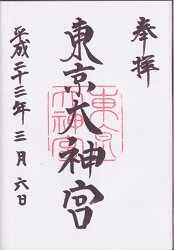 奉拝
東京大神宮
東京大神宮
平成二十三年三月六日